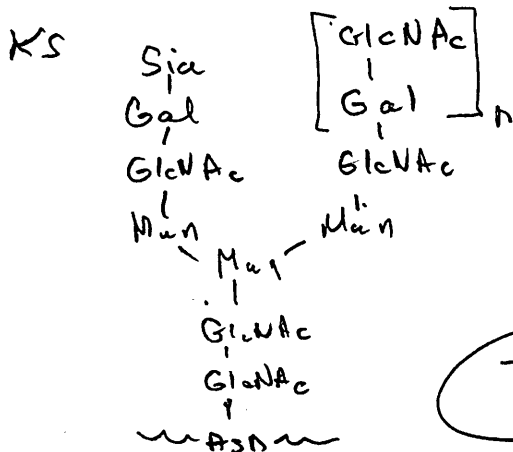 KS
Sia
Gal
GlcNAc
Man
GlcNAc
Gal
n
GlcNAc
Man
Man
GlcNAc
GlcNAc
Asn